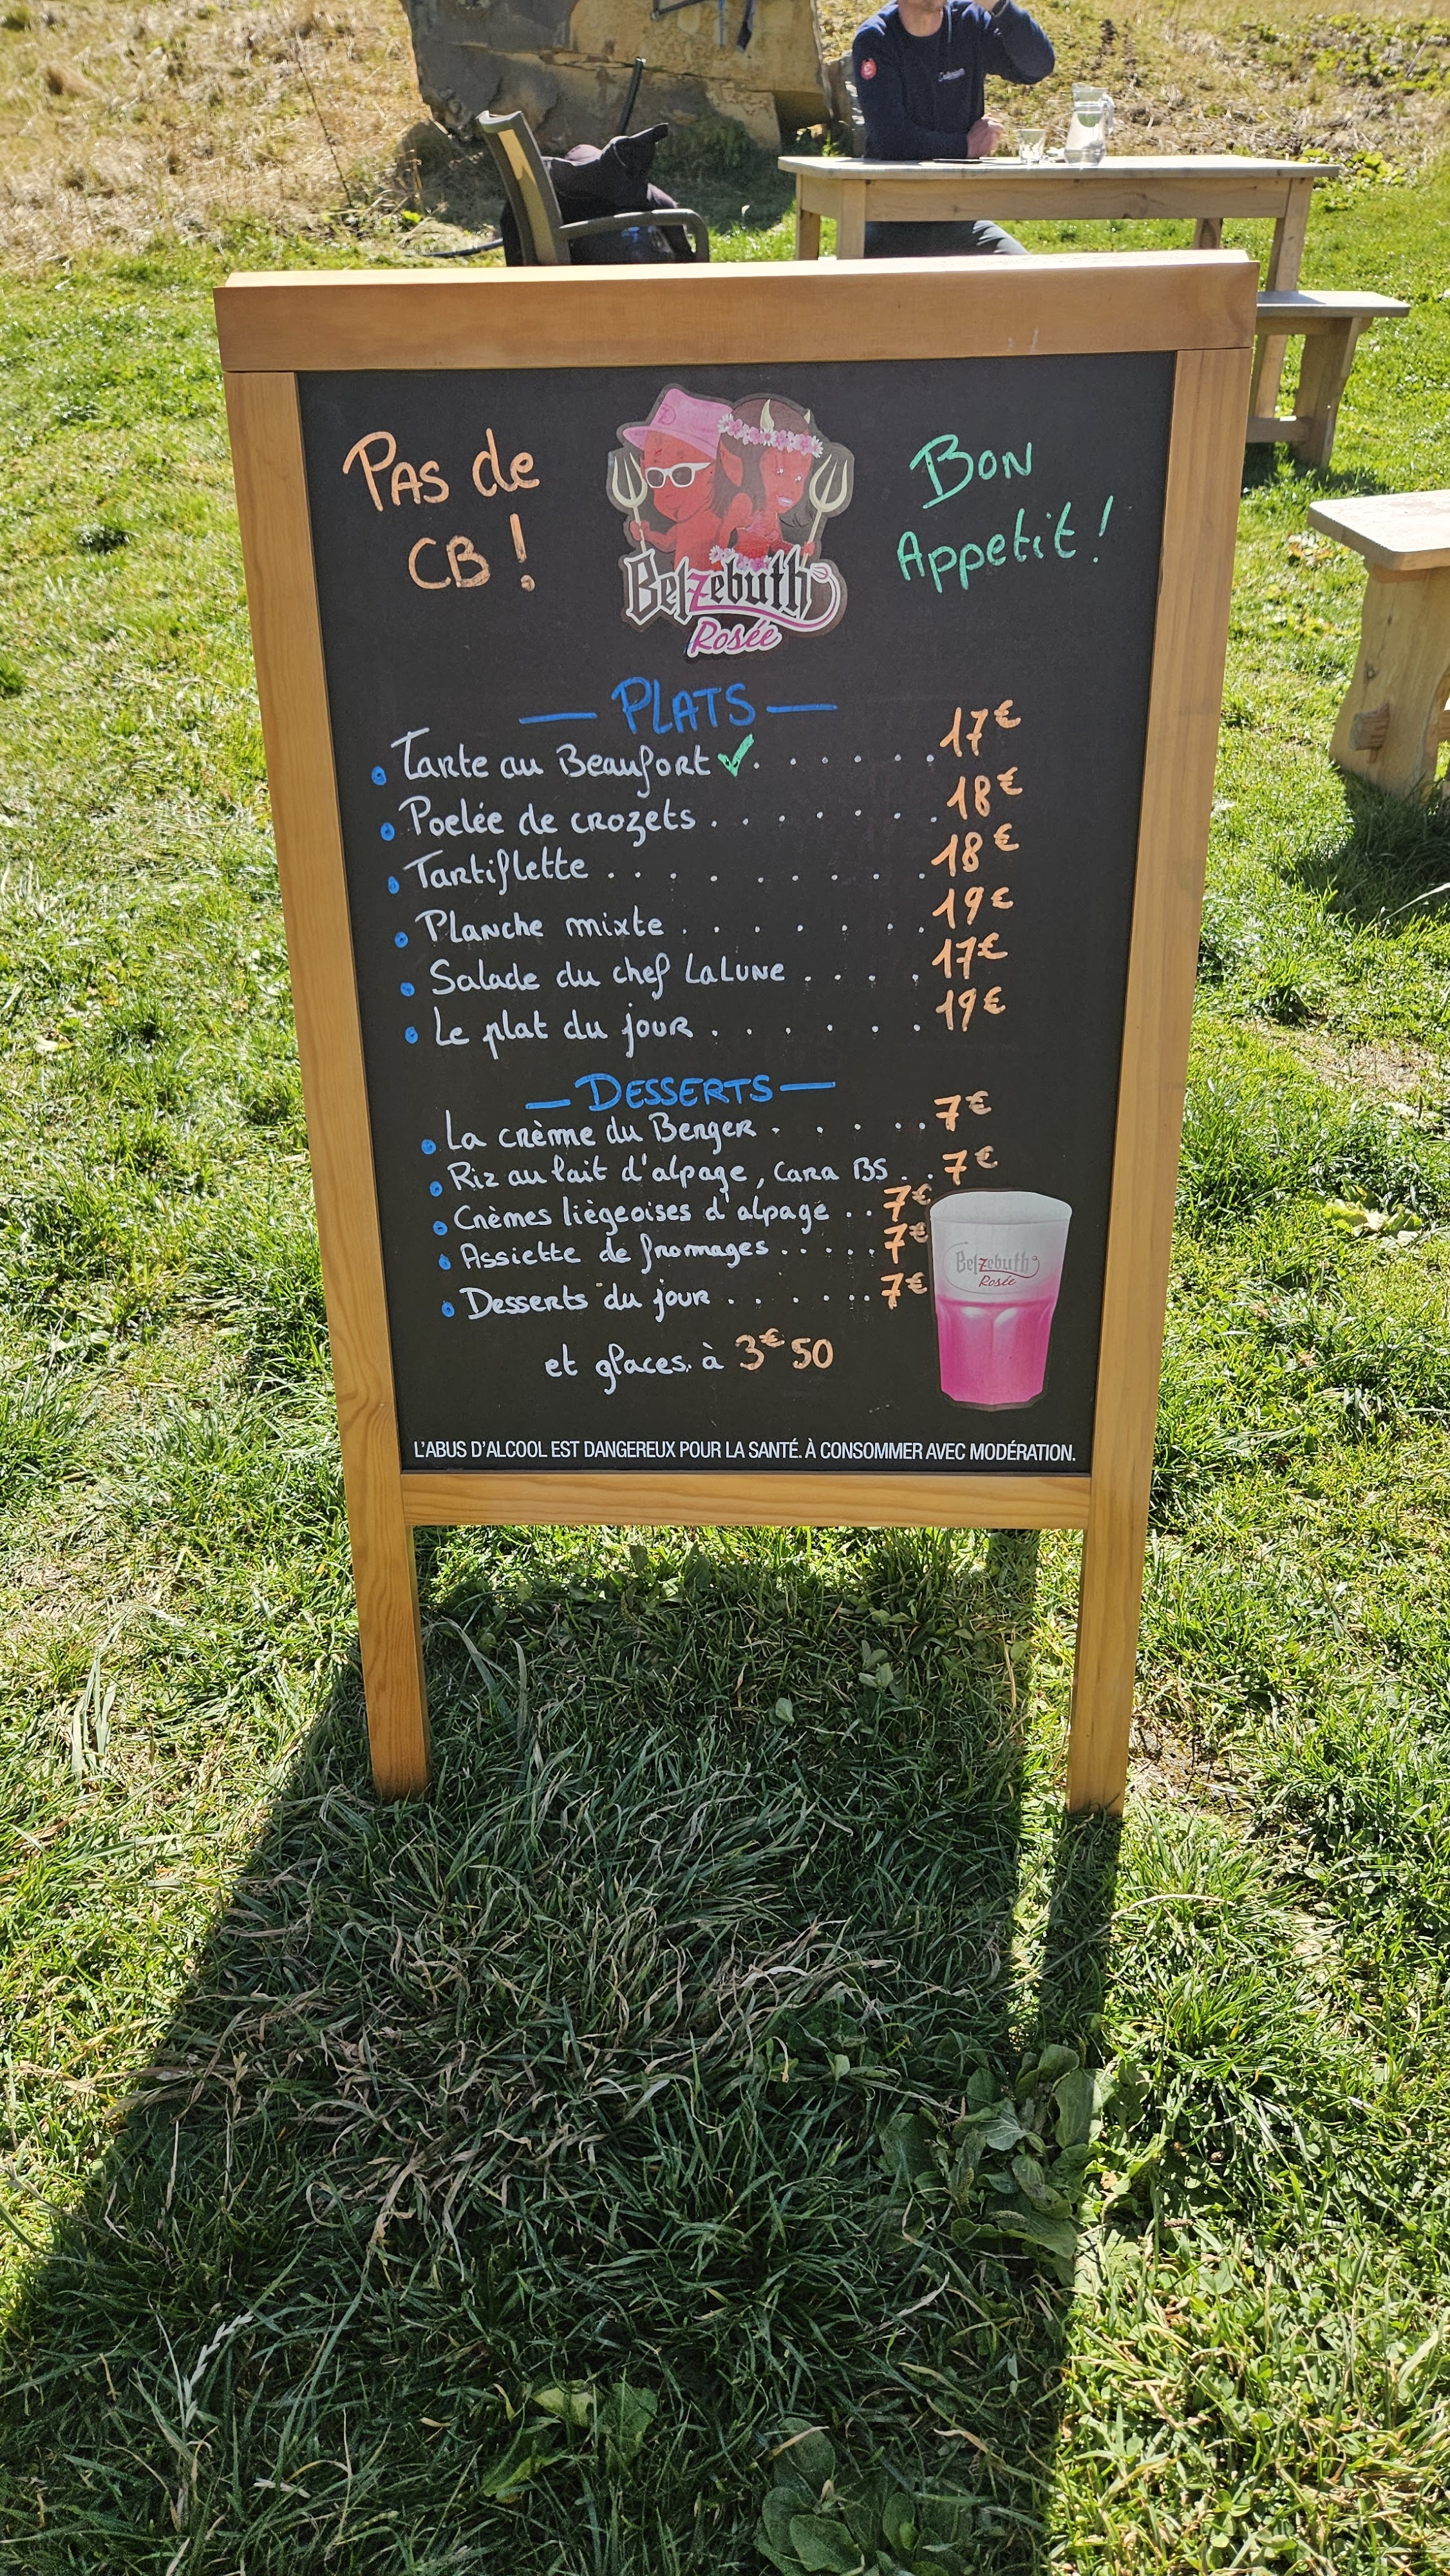 Pas de
CB !
Belzebuth
Rosée
Bon
Appetit !
— PLATS —
• Tarte au Beaufort ✓ . . . . . . . 17€
• Poelée de crozets . . . . . . . 18€
• Tartiflette . . . . . . . . . . 18€
• Planche mixte . . . . . . . . 19€
• Salade du chef LaLune . . . . 17€
• Le plat du jour . . . . . . . 19€
— DESSERTS —
• La crème du Berger . . . . . . 7€
• Riz au lait d'alpage, cara BS . . 7€
• Crèmes liègeoises d'alpage . . 7€
• Assiette de fromages . . . . . 7€
• Desserts du jour . . . . . . . 7€
et glaces à 3€50
Belzebuth
Rosée
L'ABUS D'ALCOOL EST DANGEREUX POUR LA SANTÉ. À CONSOMMER AVEC MODÉRATION.